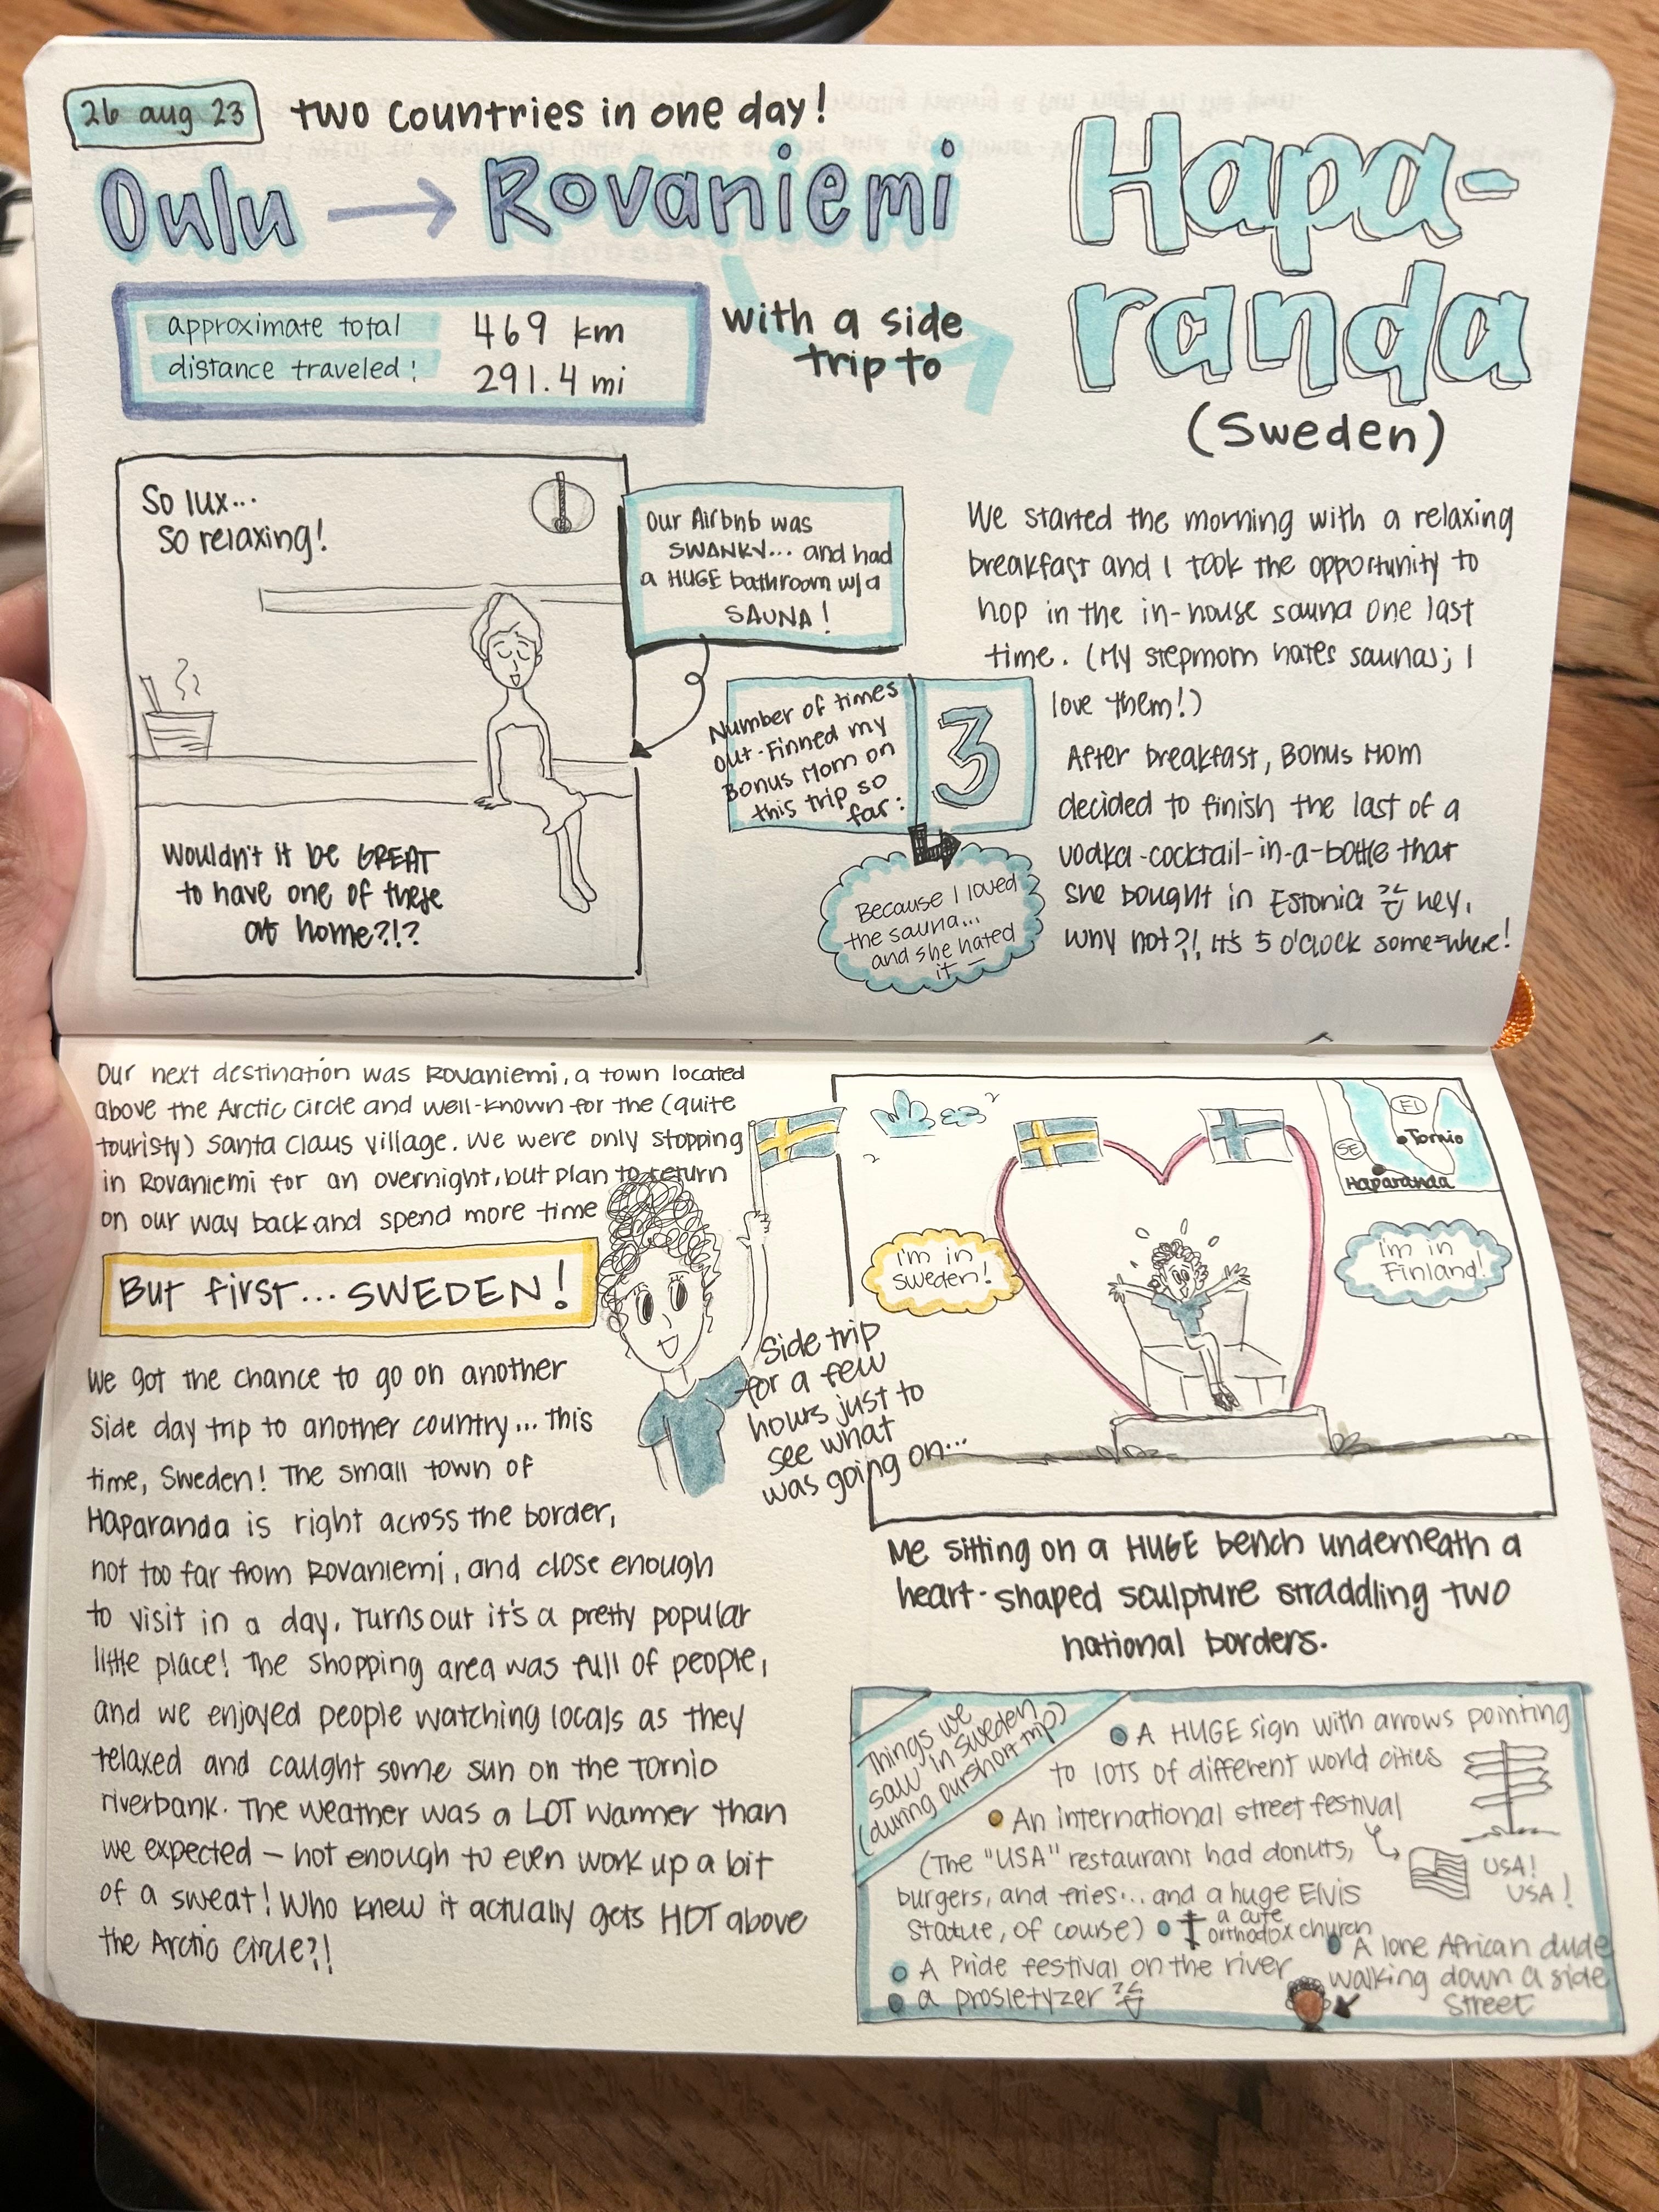 26 aug 23
two countries in one day!
Oulu → Rovaniemi
with a side
trip to
Hapa-
randa
(Sweden)
approximate total
distance traveled:
469 km
291.4 mi
So lux...
So relaxing!
Wouldn't it be GREAT
to have one of these
at home?!?
Our Airbnb was
SWANKY... and had
a HUGE bathroom w/a
SAUNA!
Number of times
out-Finned my
Bonus Mom on
this trip so
far:
3
Because I loved
the sauna...
and she hated
it
We started the morning with a relaxing
breakfast and I took the opportunity to
hop in the in-house sauna one last
time. (My stepmom hates saunas; I
love them!)
After breakfast, Bonus Mom
decided to finish the last of a
vodka-cocktail-in-a-bottle that
she bought in Estonia hey,
why not?! It's 5 o'clock some-where!
Our next destination was Rovaniemi, a town located
above the Arctic Circle and well-known for the (quite
touristy) Santa Claus Village. We were only stopping
in Rovaniemi for an overnight, but plan to return
on our way back and spend more time
But first... SWEDEN!
We got the chance to go on another
side day trip to another country... this
time, Sweden! The small town of
Haparanda is right across the border,
not too far from Rovaniemi, and close enough
to visit in a day. Turns out it's a pretty popular
little place! The shopping area was full of people,
and we enjoyed people watching locals as they
relaxed and caught some sun on the Tornio
riverbank. The weather was a LOT warmer than
we expected — hot enough to even work up a bit
of a sweat! Who knew it actually gets HOT above
the Arctic Circle?!
Side trip
for a few
hours just to
see what
was going on...
FI
Tornio
SE
Haparanda
I'm in
Sweden!
I'm in
Finland!
Me sitting on a HUGE bench underneath a
heart-shaped sculpture straddling two
national borders.
Things we
saw in Sweden
(during our short trip)
A HUGE sign with arrows pointing
to LOTS of different world cities
An international street festival
(The "USA" restaurant had donuts,
burgers, and fries... and a huge Elvis
statue, of course)
USA!
USA!
a cute
orthodox church
A Pride festival on the river
a prosletyzer
A lone African dude
walking down a side
street